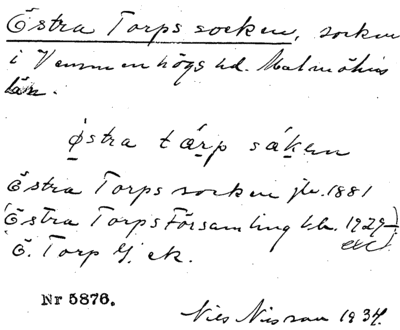 Östra Torps socken, socken
i Vemmenhögs hd. Malmöhus
län.
östra tårp såken
Östra Torps socken jb. 1881
(Östra Torps Församling kb. 1929)
Ö. Torp G. ek.
Nr 5876.
Nils Nilsson 1934.